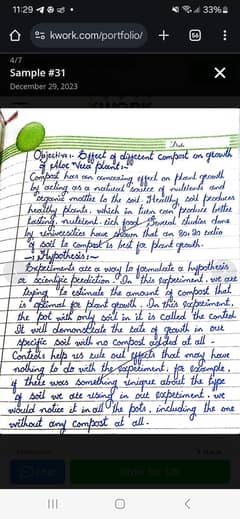 11:29
33%
kwork.com/portfolio/
56
4/7
Sample #31
December 29, 2023
Date
Objective:- Effect of different compost on growth
of Aloe Vera plant:-
Compost has an amazing effect on plant growth
by acting as a natural source of nutrients and
organic matter to the soil. Healthy soil produces
healthy plants, which in turn can produce better
tasting, nutrient-rich food. Several studies done
by universities have shown that an 80:20 ratio
of soil to compost is best for plant growth.
→ Hypothesis:-
Experiments are a way to formulate a hypothesis
or scientific prediction. In this experiment, we are
trying to estimate the amount of compost that
is optimal for plant growth. In this experiment,
the pot with only soil in it is called the control.
It will demonstrate the rate of growth in our
specific soil with no compost added at all.
Controls help us rule out effects that may have
nothing to do with the experiment, for example,
if there was something unique about the type
of soil we are using in our experiment, we
would notice it in all the pots, including the one
without any compost at all.